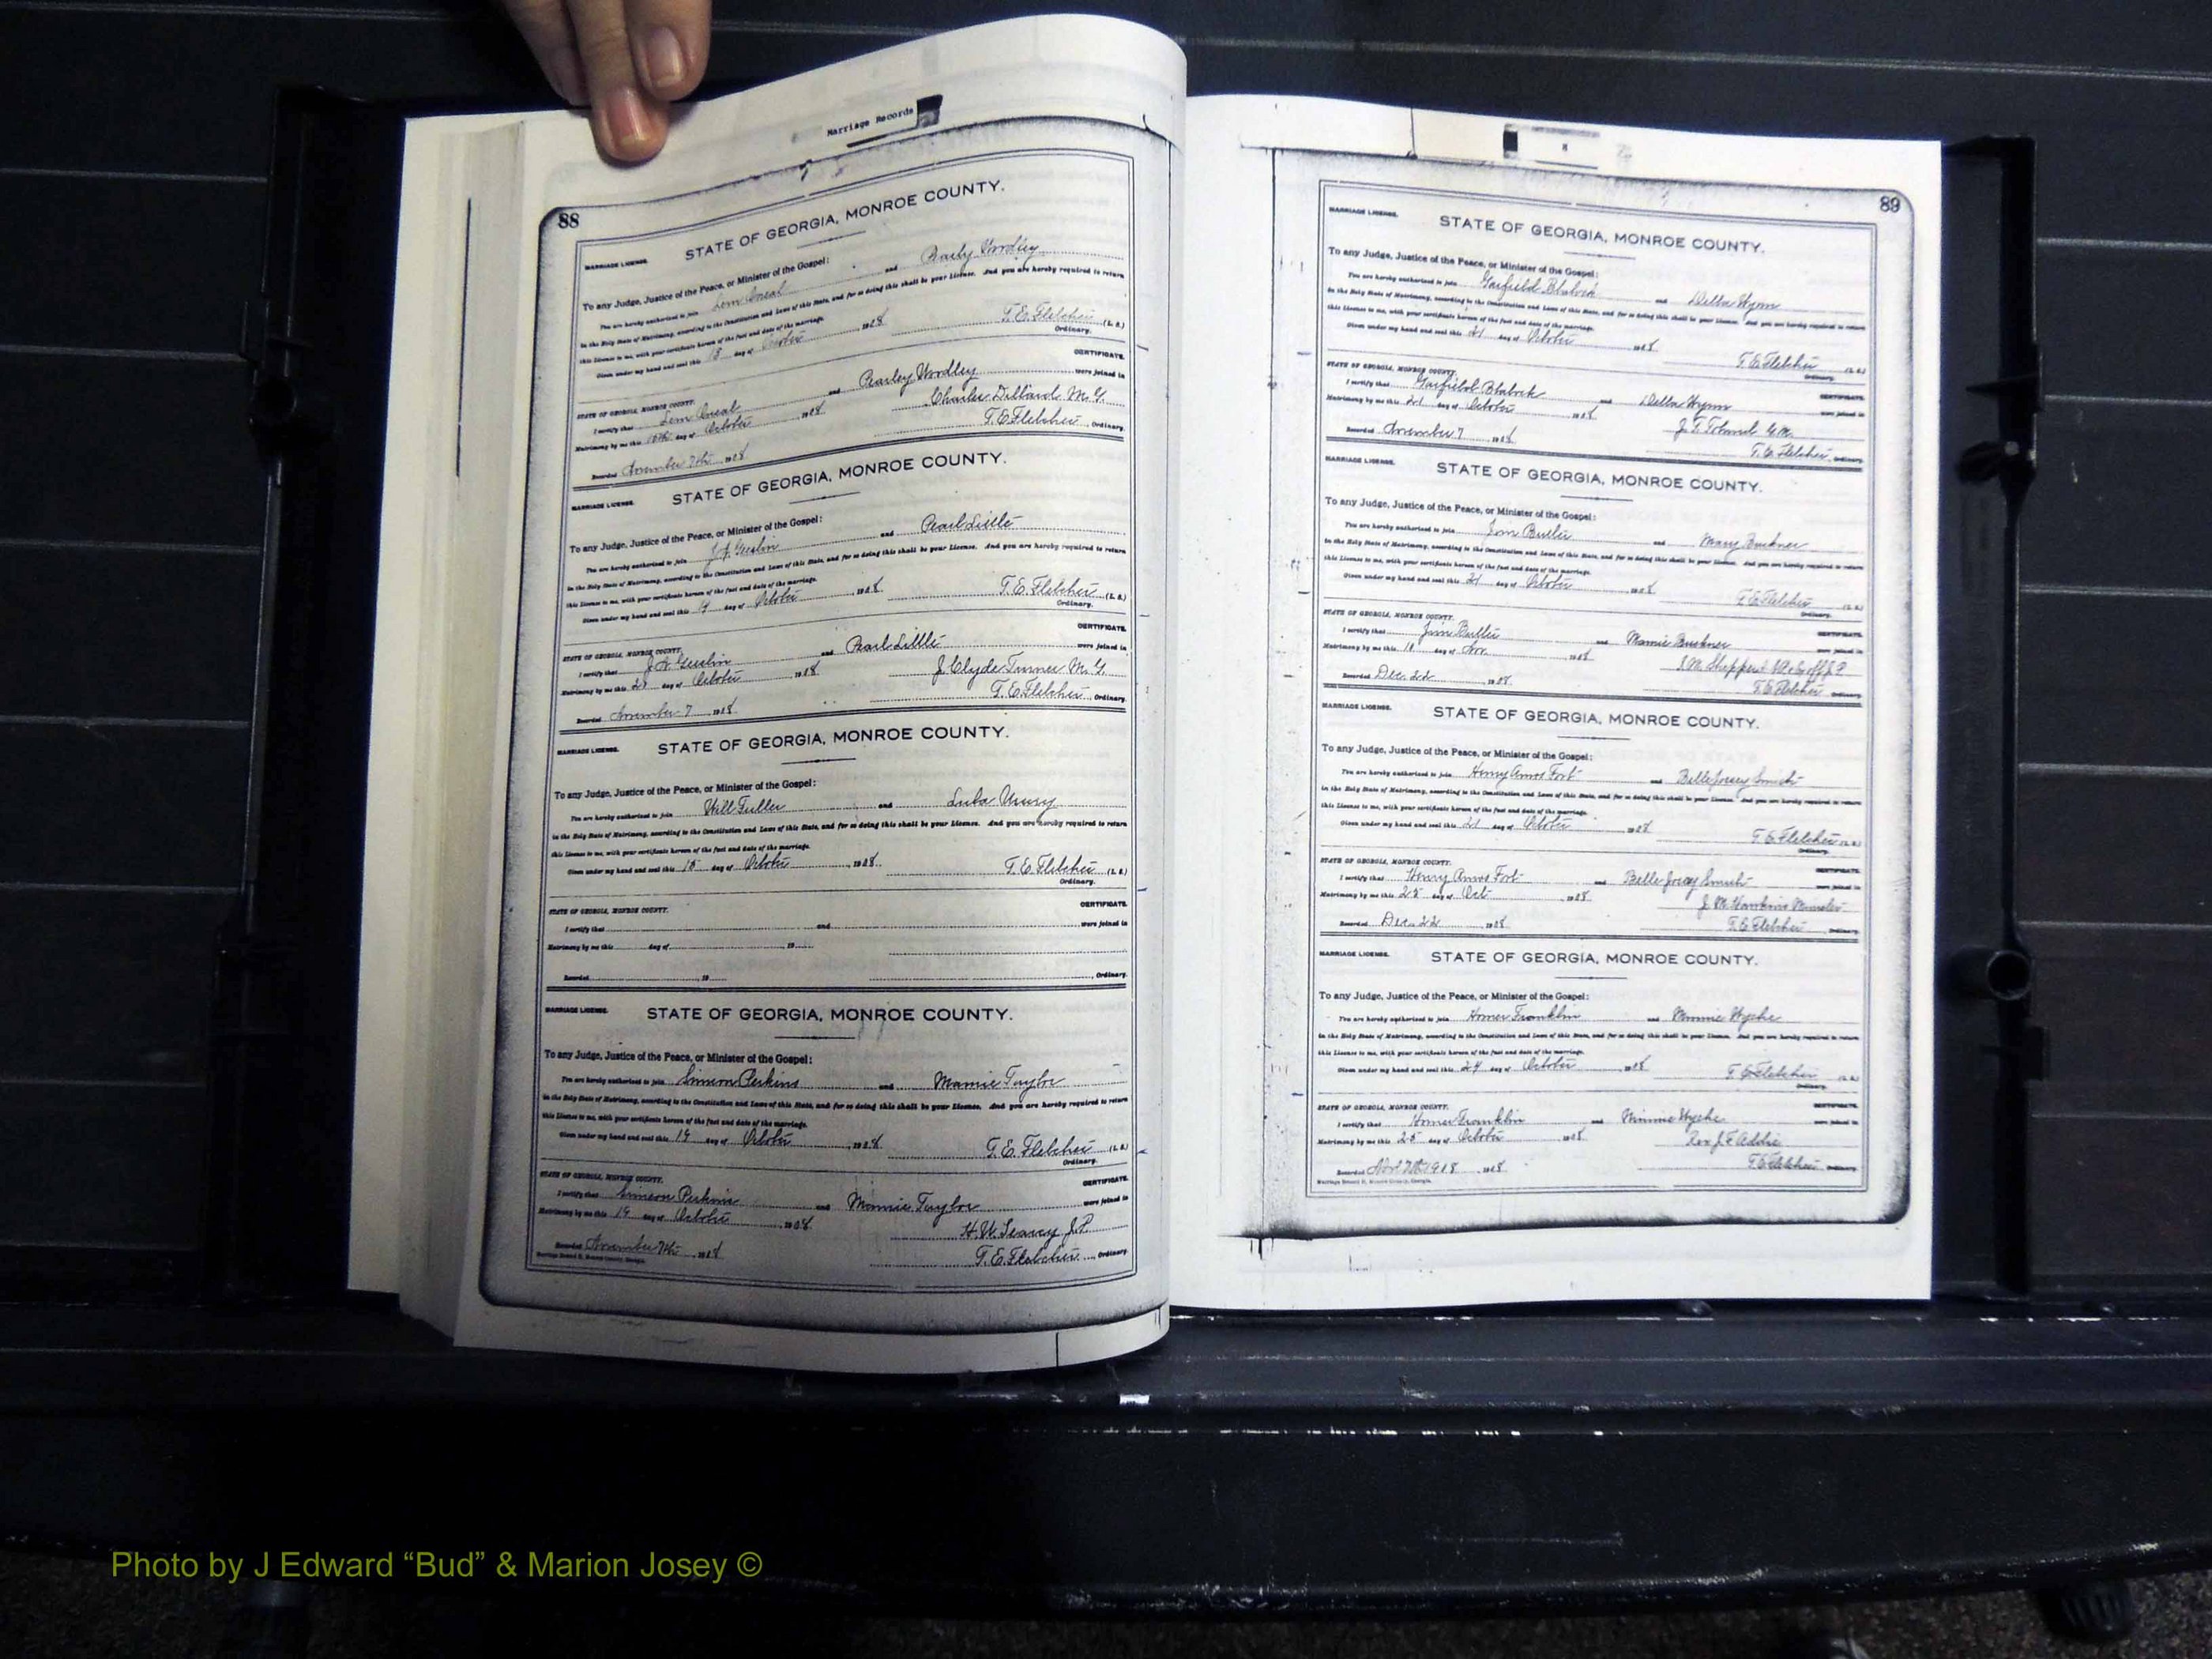 Marriage Records
88
STATE OF GEORGIA, MONROE COUNTY.
MARRIAGE LICENSE.
To any Judge, Justice of the Peace, or Minister of the Gospel:
You are hereby authorized to join Lem Oneal and Pearly Wordley
in the Holy State of Matrimony, according to the Constitution and Laws of this State, and for so doing this shall be your License. And you are hereby required to return
this License to me, with your certificate hereon of the fact and date of the marriage.
Given under my hand and seal this 18 day of October 1908
T. E. Fletcher (L. S.)
Ordinary.
CERTIFICATE.
STATE OF GEORGIA, MONROE COUNTY.
I certify that Lem Oneal and Pearley Wordley were joined in
Matrimony by me this 18th day of October 1908 Charles Dillard M. G.
Recorded November 7th 1908 T. E. Fletcher, Ordinary.
MARRIAGE LICENSE.
STATE OF GEORGIA, MONROE COUNTY.
To any Judge, Justice of the Peace, or Minister of the Gospel:
You are hereby authorized to join and Pearl Little
in the Holy State of Matrimony, according to the Constitution and Laws of this State, and for so doing this shall be your License. And you are hereby required to return
this License to me, with your certificate hereon of the fact and date of the marriage.
Given under my hand and seal this 19 day of October, 1908 T. E. Fletcher (L. S.)
Ordinary.
CERTIFICATE.
STATE OF GEORGIA, MONROE COUNTY.
I certify that and Pearl Little were joined in
Matrimony by me this day of October, 1908 J. Clyde Turner M. G.
Recorded November 7, 1908 T. E. Fletcher, Ordinary.
MARRIAGE LICENSE.
STATE OF GEORGIA, MONROE COUNTY.
To any Judge, Justice of the Peace, or Minister of the Gospel:
You are hereby authorized to join Will Fuller and Luba
in the Holy State of Matrimony, according to the Constitution and Laws of this State, and for so doing this shall be your License. And you are hereby required to return
this License to me, with your certificate hereon of the fact and date of the marriage.
Given under my hand and seal this 15 day of October, 1908 T. E. Fletcher (L. S.)
Ordinary.
CERTIFICATE.
STATE OF GEORGIA, MONROE COUNTY.
I certify that and were joined in
Matrimony by me this day of, 19
Recorded, 19 , Ordinary.
MARRIAGE LICENSE.
STATE OF GEORGIA, MONROE COUNTY.
To any Judge, Justice of the Peace, or Minister of the Gospel:
You are hereby authorized to join Simeon Perkins and Mamie Taylor
in the Holy State of Matrimony, according to the Constitution and Laws of this State, and for so doing this shall be your License. And you are hereby required to return
this License to me, with your certificate hereon of the fact and date of the marriage.
Given under my hand and seal this 19 day of October, 1908 T. E. Fletcher (L. S.)
Ordinary.
CERTIFICATE.
STATE OF GEORGIA, MONROE COUNTY.
I certify that Simeon Perkins and Mamie Taylor were joined in
Matrimony by me this 19 day of October, 1908 H. W. Searcy J. P.
Recorded November 7th, 1908 T. E. Fletcher, Ordinary.
Marriage Record H, Monroe County, Georgia.
89
MARRIAGE LICENSE.
STATE OF GEORGIA, MONROE COUNTY.
To any Judge, Justice of the Peace, or Minister of the Gospel:
You are hereby authorized to join Garfield Blalock and Della Wynn
in the Holy State of Matrimony, according to the Constitution and Laws of this State, and for so doing this shall be your License. And you are hereby required to return
this License to me, with your certificate hereon of the fact and date of the marriage.
Given under my hand and seal this 21 day of October, 1908
T. E. Fletcher (L. S.)
Ordinary.
STATE OF GEORGIA, MONROE COUNTY. CERTIFICATE.
I certify that Garfield Blalock and Della Wynn were joined in
Matrimony by me this 21 day of October, 1908 J. T.
Recorded November 7, 1908 T. E. Fletcher, Ordinary.
MARRIAGE LICENSE.
STATE OF GEORGIA, MONROE COUNTY.
To any Judge, Justice of the Peace, or Minister of the Gospel:
You are hereby authorized to join Jim Butler and Mary Buckner
in the Holy State of Matrimony, according to the Constitution and Laws of this State, and for so doing this shall be your License. And you are hereby required to return
this License to me, with your certificate hereon of the fact and date of the marriage.
Given under my hand and seal this 21 day of October, 1908 T. E. Fletcher (L. S.)
Ordinary.
STATE OF GEORGIA, MONROE COUNTY. CERTIFICATE.
I certify that Jim Butler and Mamie Buckner were joined in
Matrimony by me this day of Nov., 1908
Recorded Dec. 22, 1908. T. E. Fletcher, Ordinary.
MARRIAGE LICENSE.
STATE OF GEORGIA, MONROE COUNTY.
To any Judge, Justice of the Peace, or Minister of the Gospel:
You are hereby authorized to join Henry Amos Fort and Belle Josey Smith
in the Holy State of Matrimony, according to the Constitution and Laws of this State, and for so doing this shall be your License. And you are hereby required to return
this License to me, with your certificate hereon of the fact and date of the marriage.
Given under my hand and seal this 21 day of October, 1908 T. E. Fletcher (L. S.)
Ordinary.
STATE OF GEORGIA, MONROE COUNTY. CERTIFICATE.
I certify that Henry Amos Fort and Belle Josey Smith were joined in
Matrimony by me this 25 day of Oct, 1908 J. M. Hawkins Minister
Recorded Dec. 22, 1908 T. E. Fletcher, Ordinary.
MARRIAGE LICENSE.
STATE OF GEORGIA, MONROE COUNTY.
To any Judge, Justice of the Peace, or Minister of the Gospel:
You are hereby authorized to join Homer Franklin and Minnie Wyche
in the Holy State of Matrimony, according to the Constitution and Laws of this State, and for so doing this shall be your License. And you are hereby required to return
this License to me, with your certificate hereon of the fact and date of the marriage.
Given under my hand and seal this 24 day of October 1908 T. E. Fletcher (L. S.)
Ordinary.
STATE OF GEORGIA, MONROE COUNTY. CERTIFICATE.
I certify that Homer Franklin and Minnie Wyche were joined in
Matrimony by me this 25 day of October 1908 Rev. J. F. Addie
Recorded 7th 1908, 1908 T. E. Fletcher, Ordinary.
Marriage Record H, Monroe County, Georgia.
Photo by J Edward “Bud” & Marion Josey ©